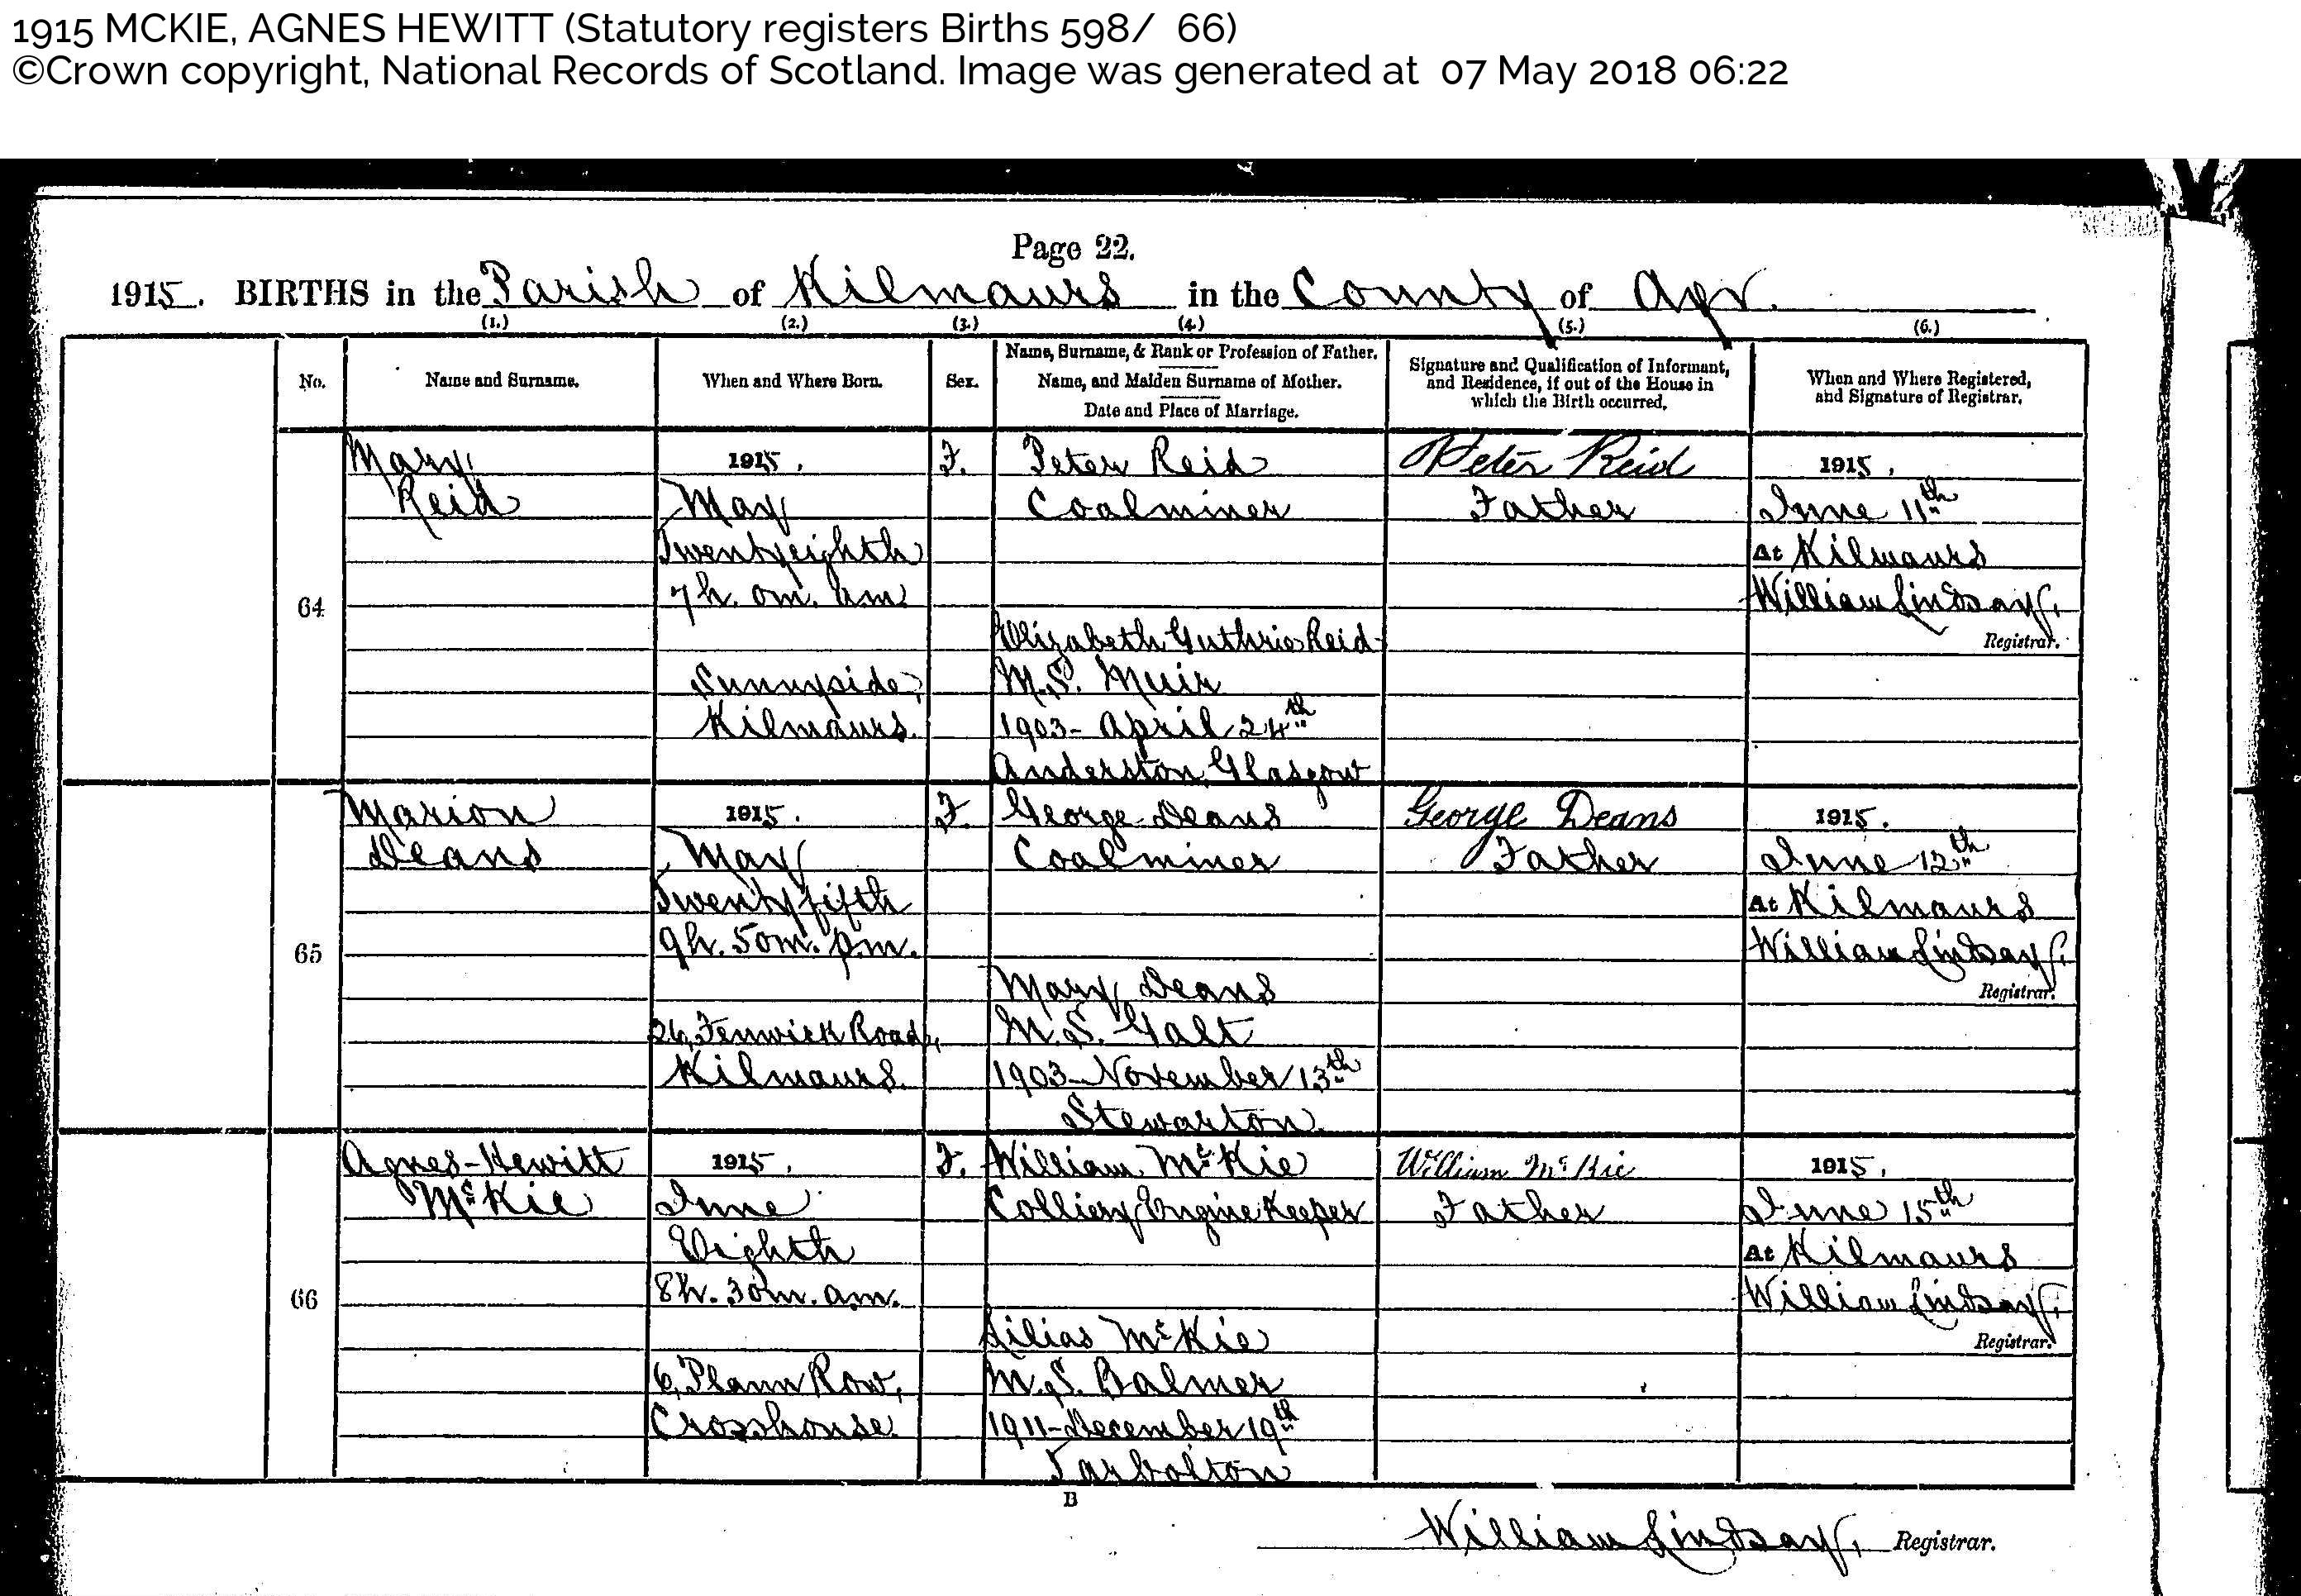 1915 MCKIE, AGNES HEWITT (Statutory registers Births 598/ 66)
©Crown copyright, National Records of Scotland. Image was generated at 07 May 2018 06:22
Page 22.
1915. BIRTHS in the Parish of Kilmaurs in the County of Ayr.
(1.) (2.) (3.) (4.) (5.) (6.)
No.
Name and Surname.
When and Where Born.
Sex.
Name, Surname, & Rank or Profession of Father.
Name, and Maiden Surname of Mother.
Date and Place of Marriage.
Signature and Qualification of Informant,
and Residence, if out of the House in
which the Birth occurred.
When and Where Registered,
and Signature of Registrar.
64
Mary
Reid
1915.
May
Twentyeighth
7h. 0m. am.
Sunnyside,
Kilmaurs.
F.
Peter Reid
Coalminer
Elizabeth Guthrie Reid
M.S. Muir
1903- April 24th
Anderston, Glasgow
Peter Reid
Father
1915.
June 11th
At Kilmaurs
William Lindsay,
Registrar.
65
Marion
Deans
1915.
May
Twentyfifth
9h. 50m. p.m.
26, Fenwick Road,
Kilmaurs.
F.
George Deans
Coalminer
Mary Deans
M.S. Galt
1903-November 13th
Stewarton.
George Deans
Father
1915.
June 12th
At Kilmaurs
William Lindsay,
Registrar.
66
Agnes-Hewitt
McKie
1915.
June
Eighth
8h. 30m. a.m.
6, Plann Row,
Crosshouse.
F.
William McKie
Colliery Engine Keeper
Lilias McKie
M.S. Balmer
1911-December 19th
Tarbolton
William McKie
Father
1915.
June 15th
At Kilmaurs
William Lindsay,
Registrar.
B
William Lindsay, Registrar.